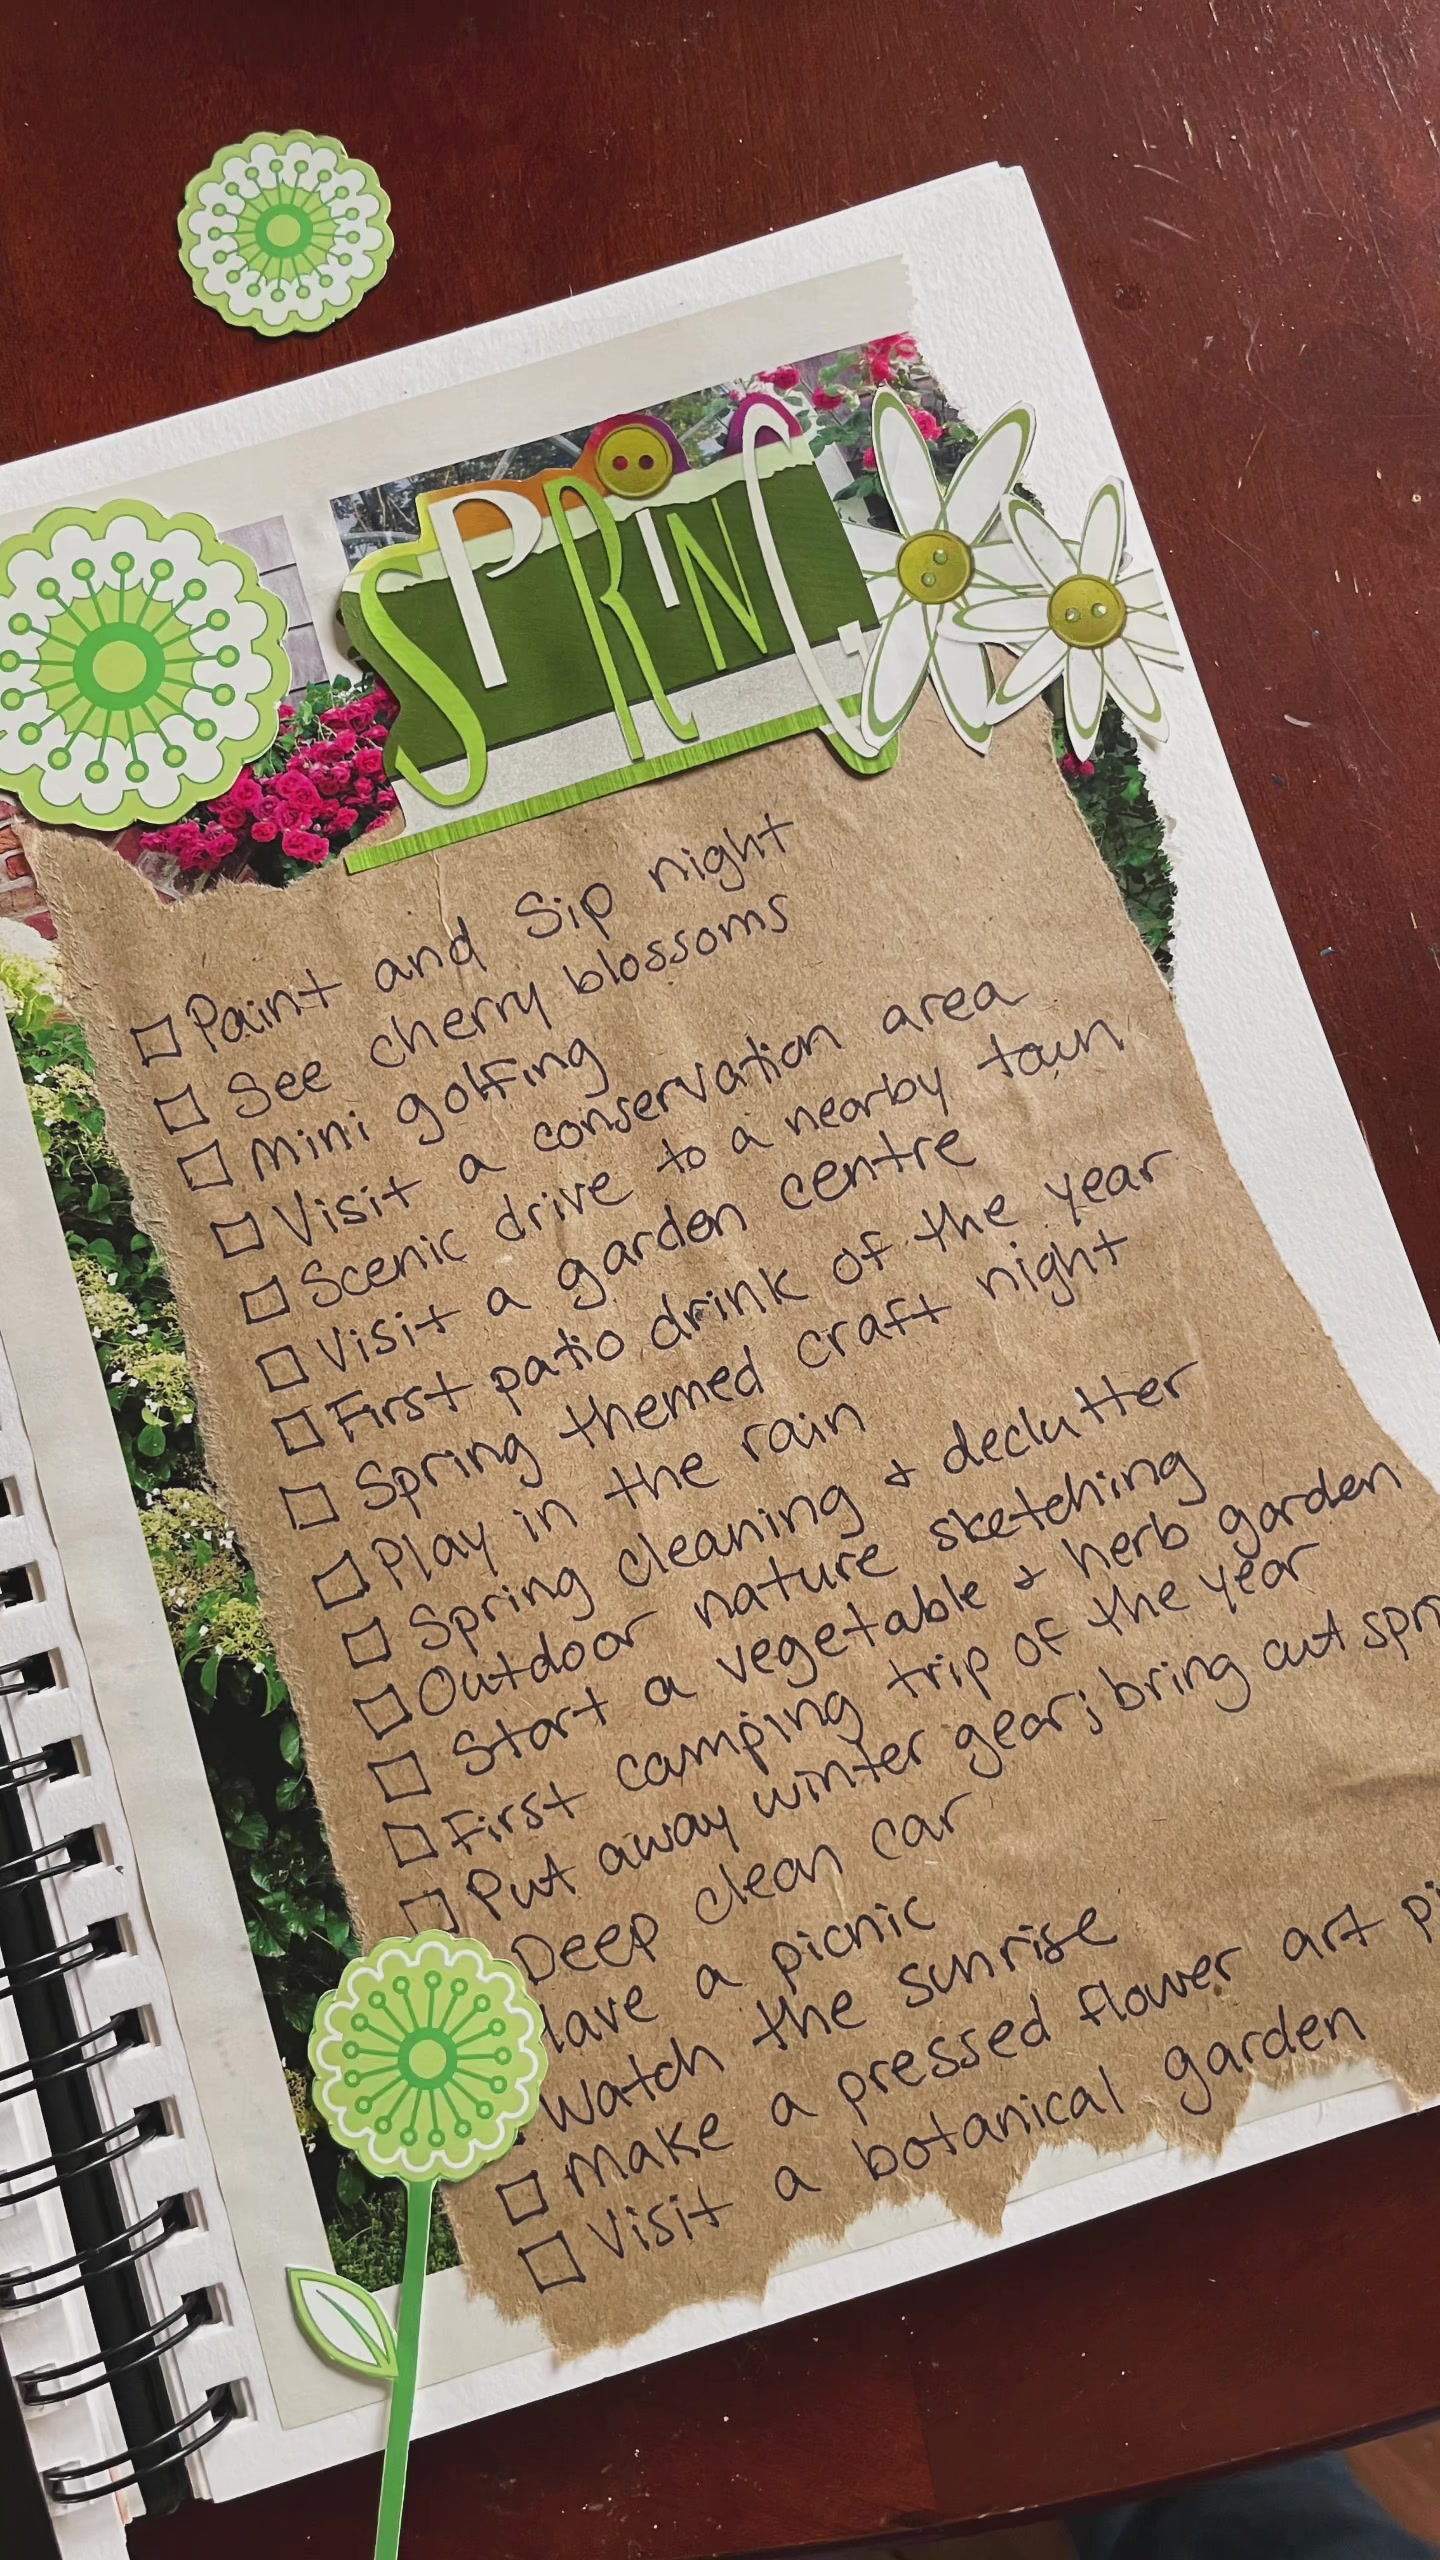 SPRING
Paint and Sip night
See cherry blossoms
Mini golfing
Visit a conservation area
Scenic drive to a nearby town
Visit a garden centre
First patio drink of the year
Spring themed craft night
Play in the rain
Spring cleaning & declutter
Outdoor nature sketching
Start a vegetable & herb garden
First camping trip of the year
Put away winter gear; bring out
Deep clean car
a picnic
Watch the sunrise
Make a pressed flower art
Visit a botanical garden